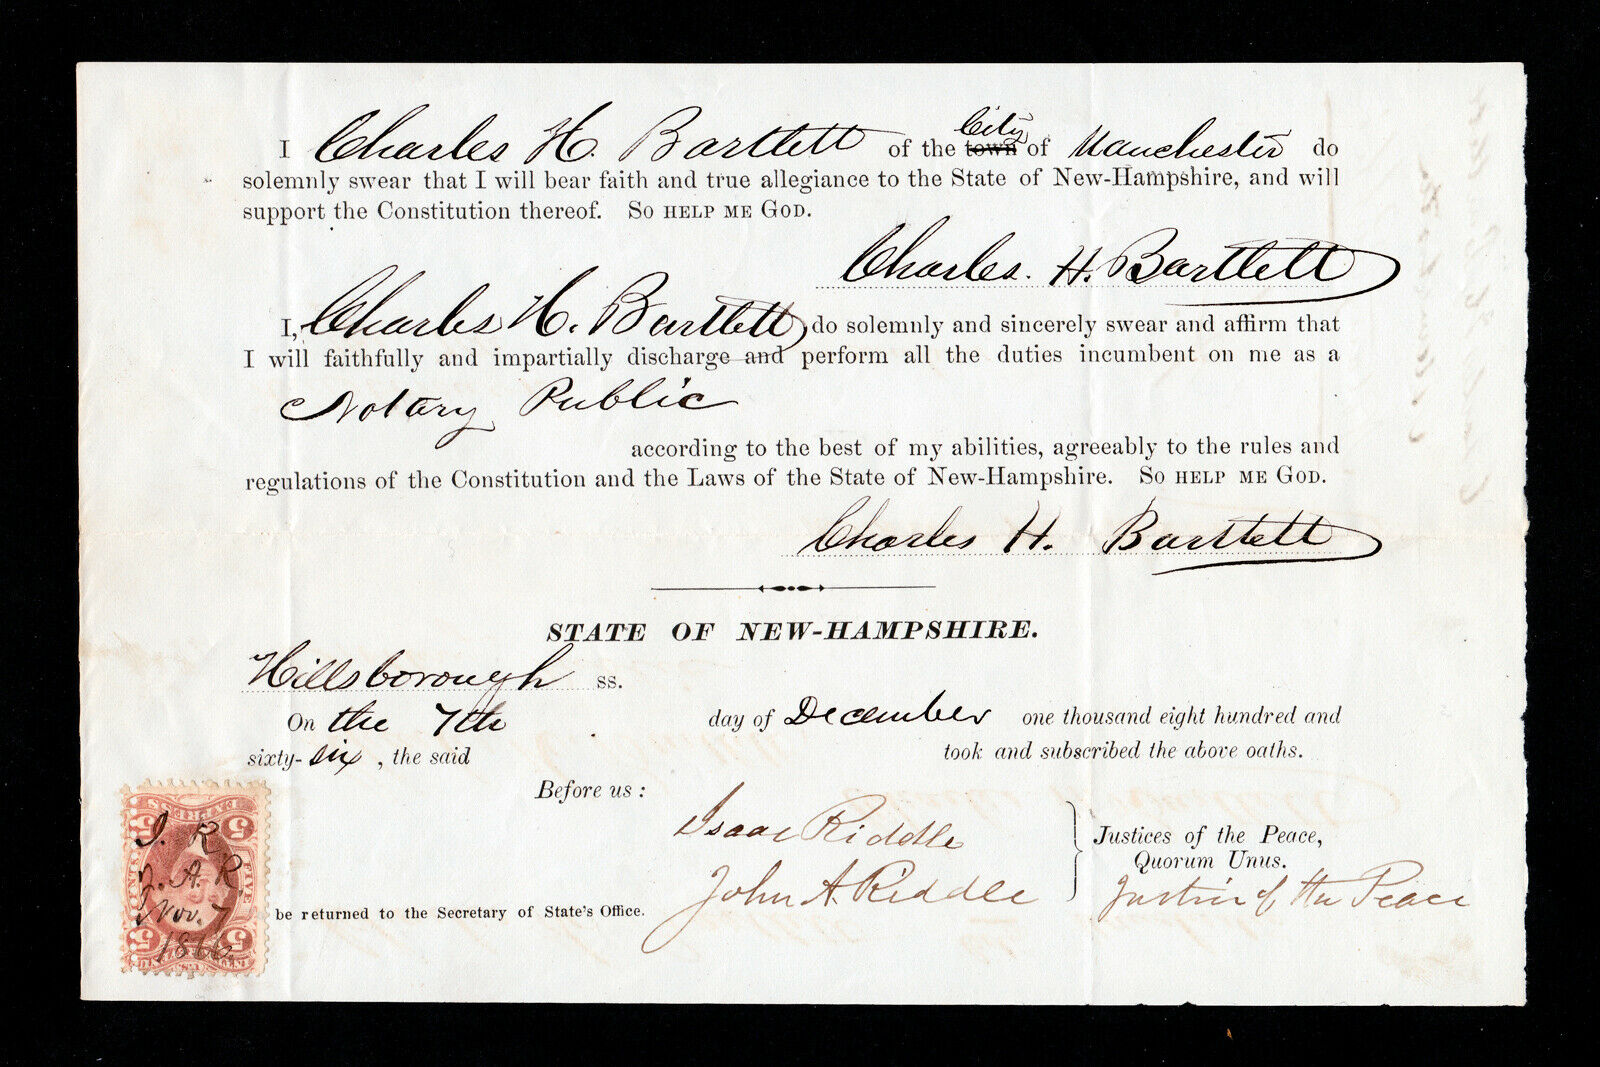 I Charles H. Bartlett of the town City of Manchester do
solemnly swear that I will bear faith and true allegiance to the State of New-Hampshire, and will
support the Constitution thereof. SO HELP ME GOD.
Charles. H. Bartlett
I, Charles H. Bartlett, do solemnly and sincerely swear and affirm that
I will faithfully and impartially discharge and perform all the duties incumbent on me as a
Notary Public
according to the best of my abilities, agreeably to the rules and
regulations of the Constitution and the Laws of the State of New-Hampshire. SO HELP ME GOD.
Charles H. Bartlett
STATE OF NEW-HAMPSHIRE.
Hillsborough ss.
On the 7th day of December one thousand eight hundred and
sixty-six, the said took and subscribed the above oaths.
Before us:
Isaac Riddle
John A. Riddle
Justices of the Peace,
Quorum Unus.
Justice of the Peace
be returned to the Secretary of State's Office.
5 5
I. R.
J. A. R.
FIVE
Nov. 7
1866.
5 5